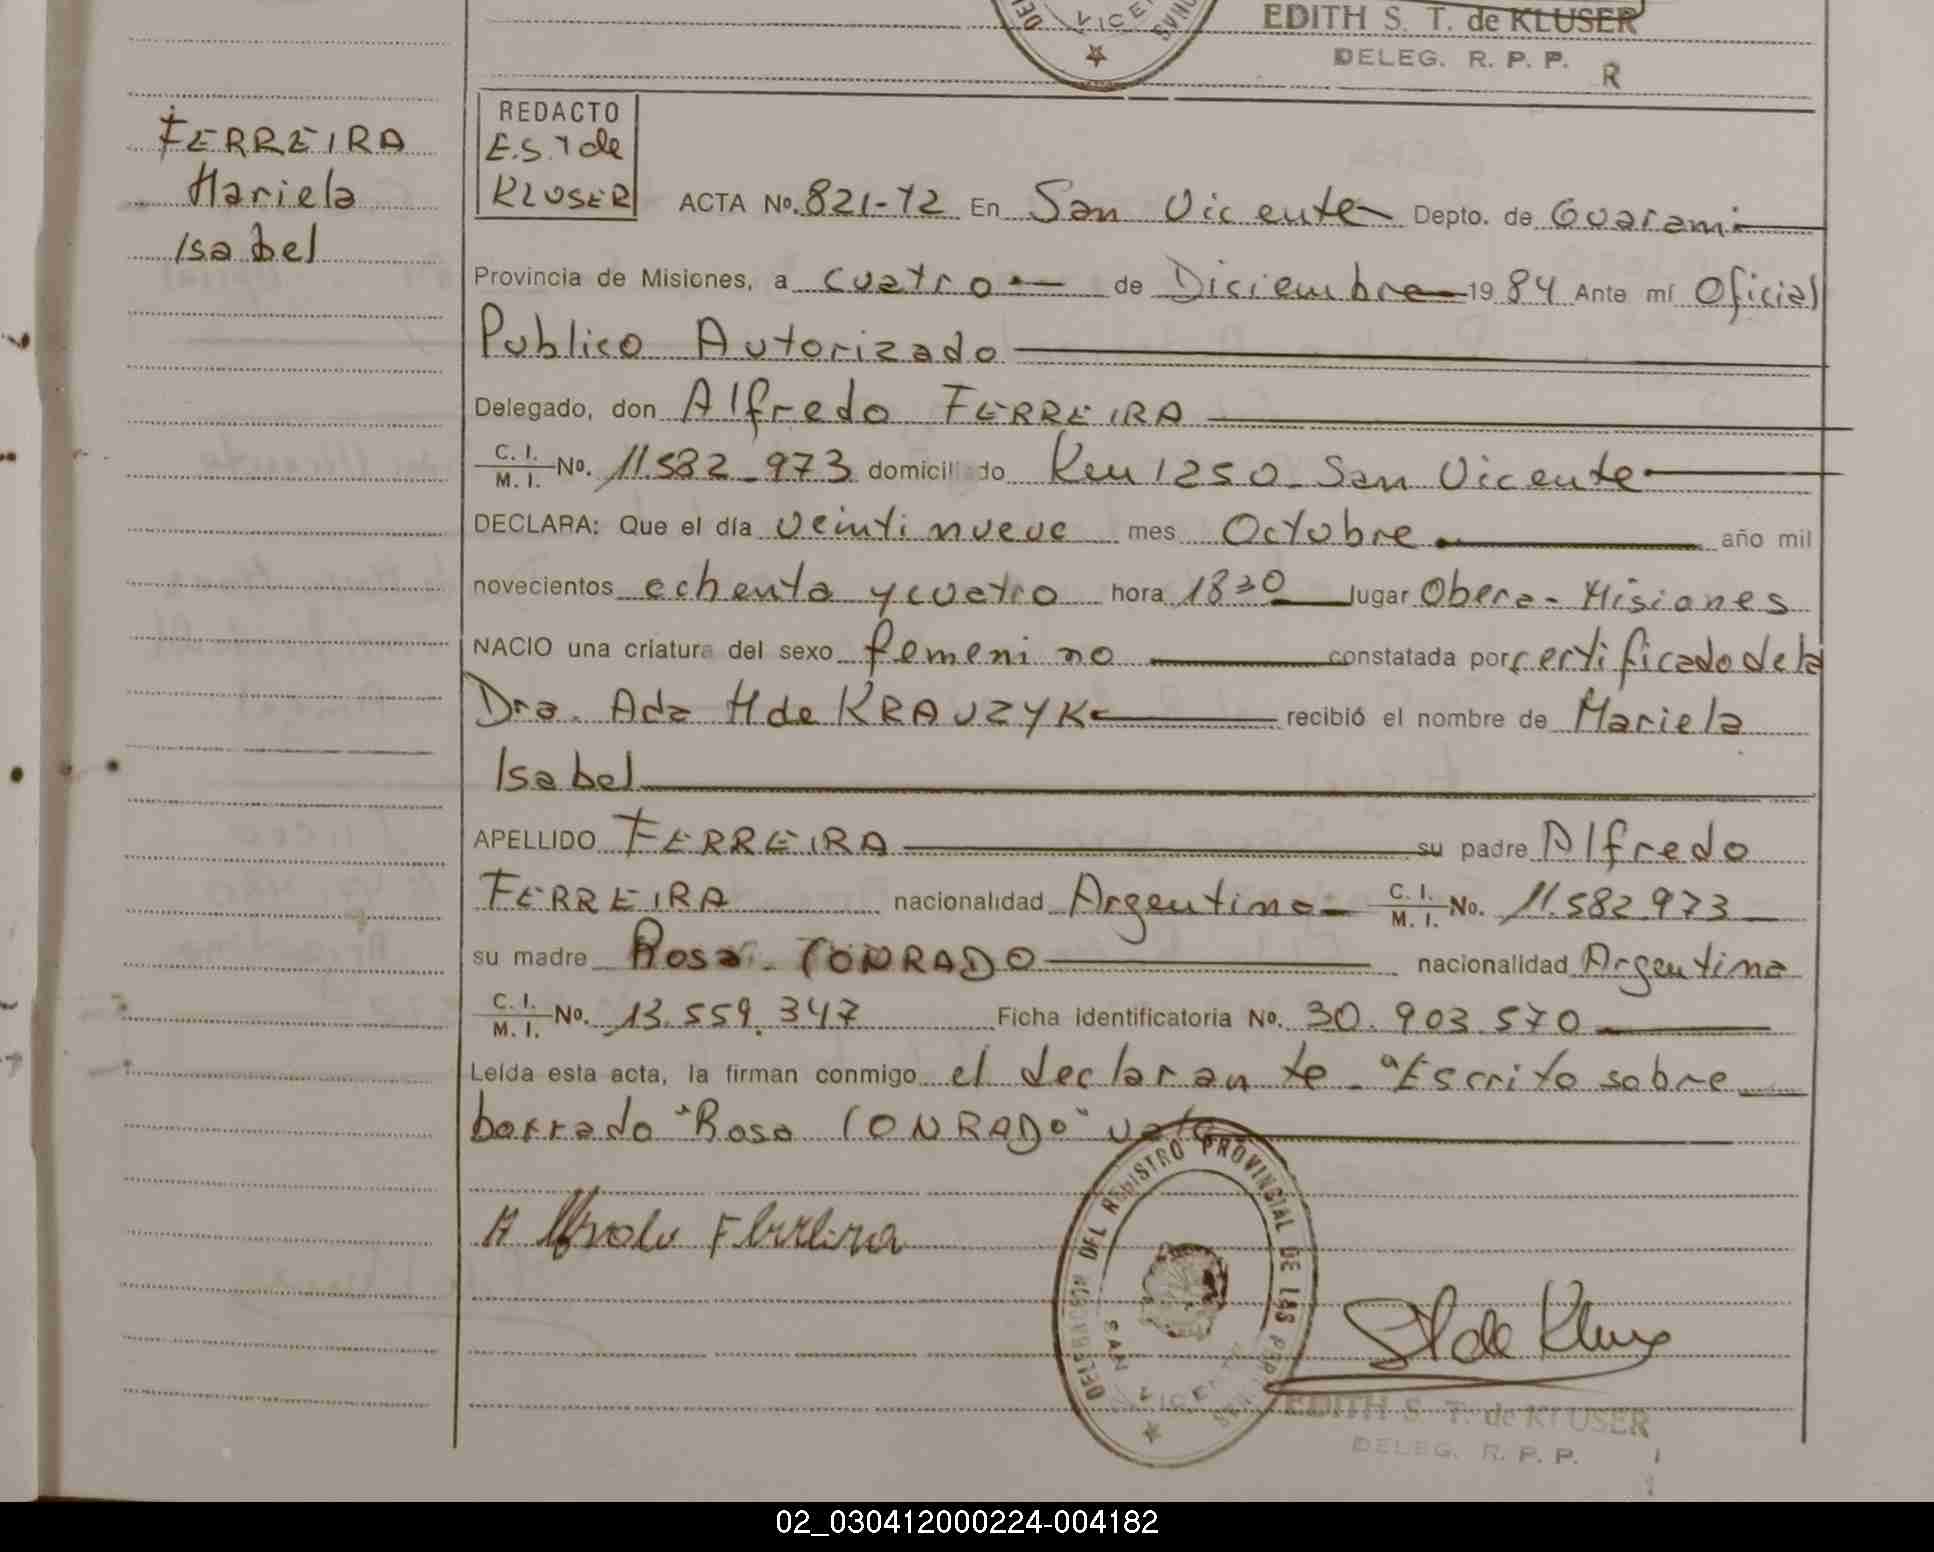 EDITH S. T. de KLUSER
DELEG. R. P. P.
R
FERREIRA
Mariela
Isabel
REDACTO
E.S.T de
KLUSER
ACTA No. 821-T2 En San Vicente Depto. de Guarani
Provincia de Misiones, a cuatro de Diciembre 1984 Ante mí Oficial
Publico Autorizado
Delegado, don Alfredo FERREIRA
C. I. / M. I. No. 11582_973 domiciliado Km 1250_ San Vicente
DECLARA: Que el día veinti nueve mes Octubre año mil
novecientos ochenta y cuatro hora 1830 lugar Obera - Misiones
NACIO una criatura del sexo femeni no constatada por certificado de la
Dra. Ada H de KRAUZYK recibió el nombre de Mariela
Isabel
APELLIDO FERREIRA su padre Alfredo
FERREIRA nacionalidad Argentina C. I. / M. I. No. 11.582.973
su madre Rosa CONRADO nacionalidad Argentina
C. I. / M. I. No. 13.559.347 Ficha identificatoria No. 30.903.570
Leída esta acta, la firman conmigo el declarante_ "Escrito sobre
borrado "Rosa CONRADO" vale
Alfredo Ferreira
DELEGACION DEL REGISTRO PROVINCIAL DE LAS PERSONAS
SAN VICENTE
ST de Kluser
EDITH S. T. de KLUSER
DELEG. R. P. P.
02_030412000224-004182